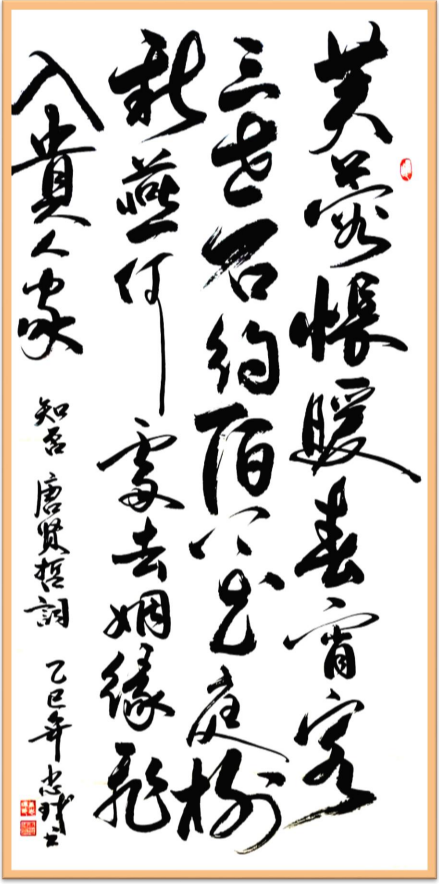 芙蓉帳暖春宵客
三世石約陌花庭樹
新燕何處去姻緣飛
入貴人家
知否 唐賢哲詞 乙巳年